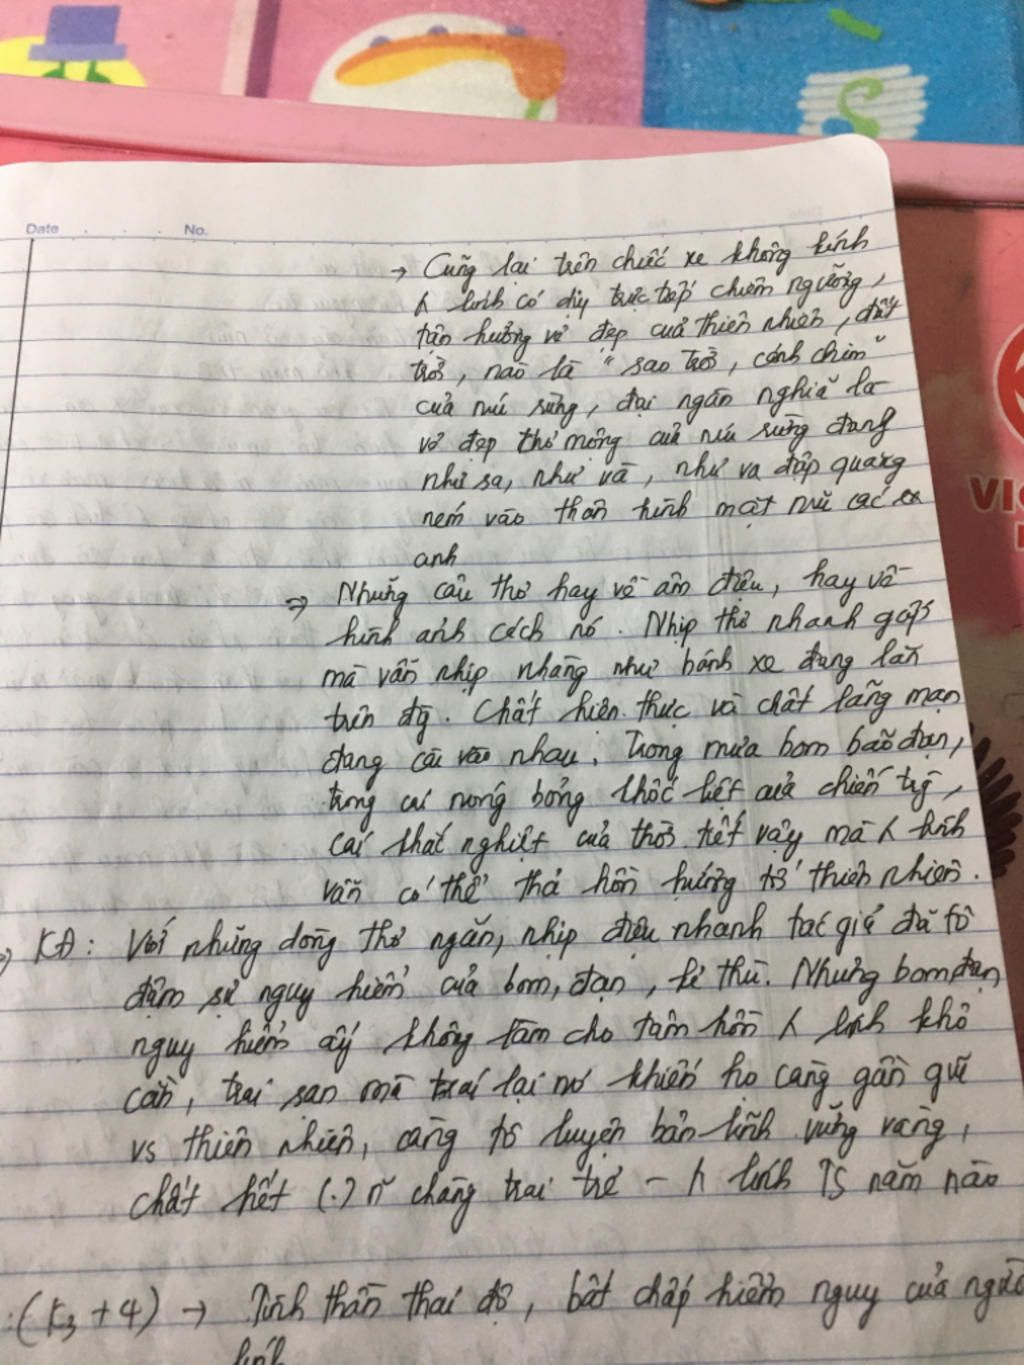 Date No.
→ Cũng lại trên chiếc xe không kính
lính có đk trực tiếp chiêm ngưỡng,
tận hưởng vẻ đẹp của thiên nhiên, đất
trời, nào là "sao trời, cánh chim"
của núi rừng, đại ngàn nghĩa là
vẻ đẹp thơ mộng của núi rừng đang
như sa, như và, như va đập quang
ném vào thân hình mặt mũi các
anh
⇒ Những câu thơ hay về âm điệu, hay về
hình ảnh cách nó. Nhịp thơ nhanh gấp
mà vẫn nhịp nhàng như bánh xe đang lăn
trên đg. Chất hiện thực và chất lãng mạn
đang cài vào nhau. Trong mưa bom bão đạn,
trong cái nóng bỏng khốc liệt của chiến trg,
cái khắc nghiệt của thời tiết vậy mà lính
vẫn có thể thả hồn hướng tới thiên nhiên.
KĐ: Với những dòng thơ ngắn, nhịp điệu nhanh tác giả đã tô
đậm sự nguy hiểm của bom, đạn, kẻ thù. Nhưng bom, đạn
nguy hiểm ấy không làm cho tâm hồn lính khô
cằn, trai sạn mà trái lại nó khiến họ càng gần gũi
vs thiên nhiên, càng tô luyện bản lĩnh vững vàng,
chất hết (.) n~ chàng trai trẻ - lính TS năm nào
:(K3 + 4) → Tinh thần thái độ, bất chấp hiểm nguy của người
lính
VI